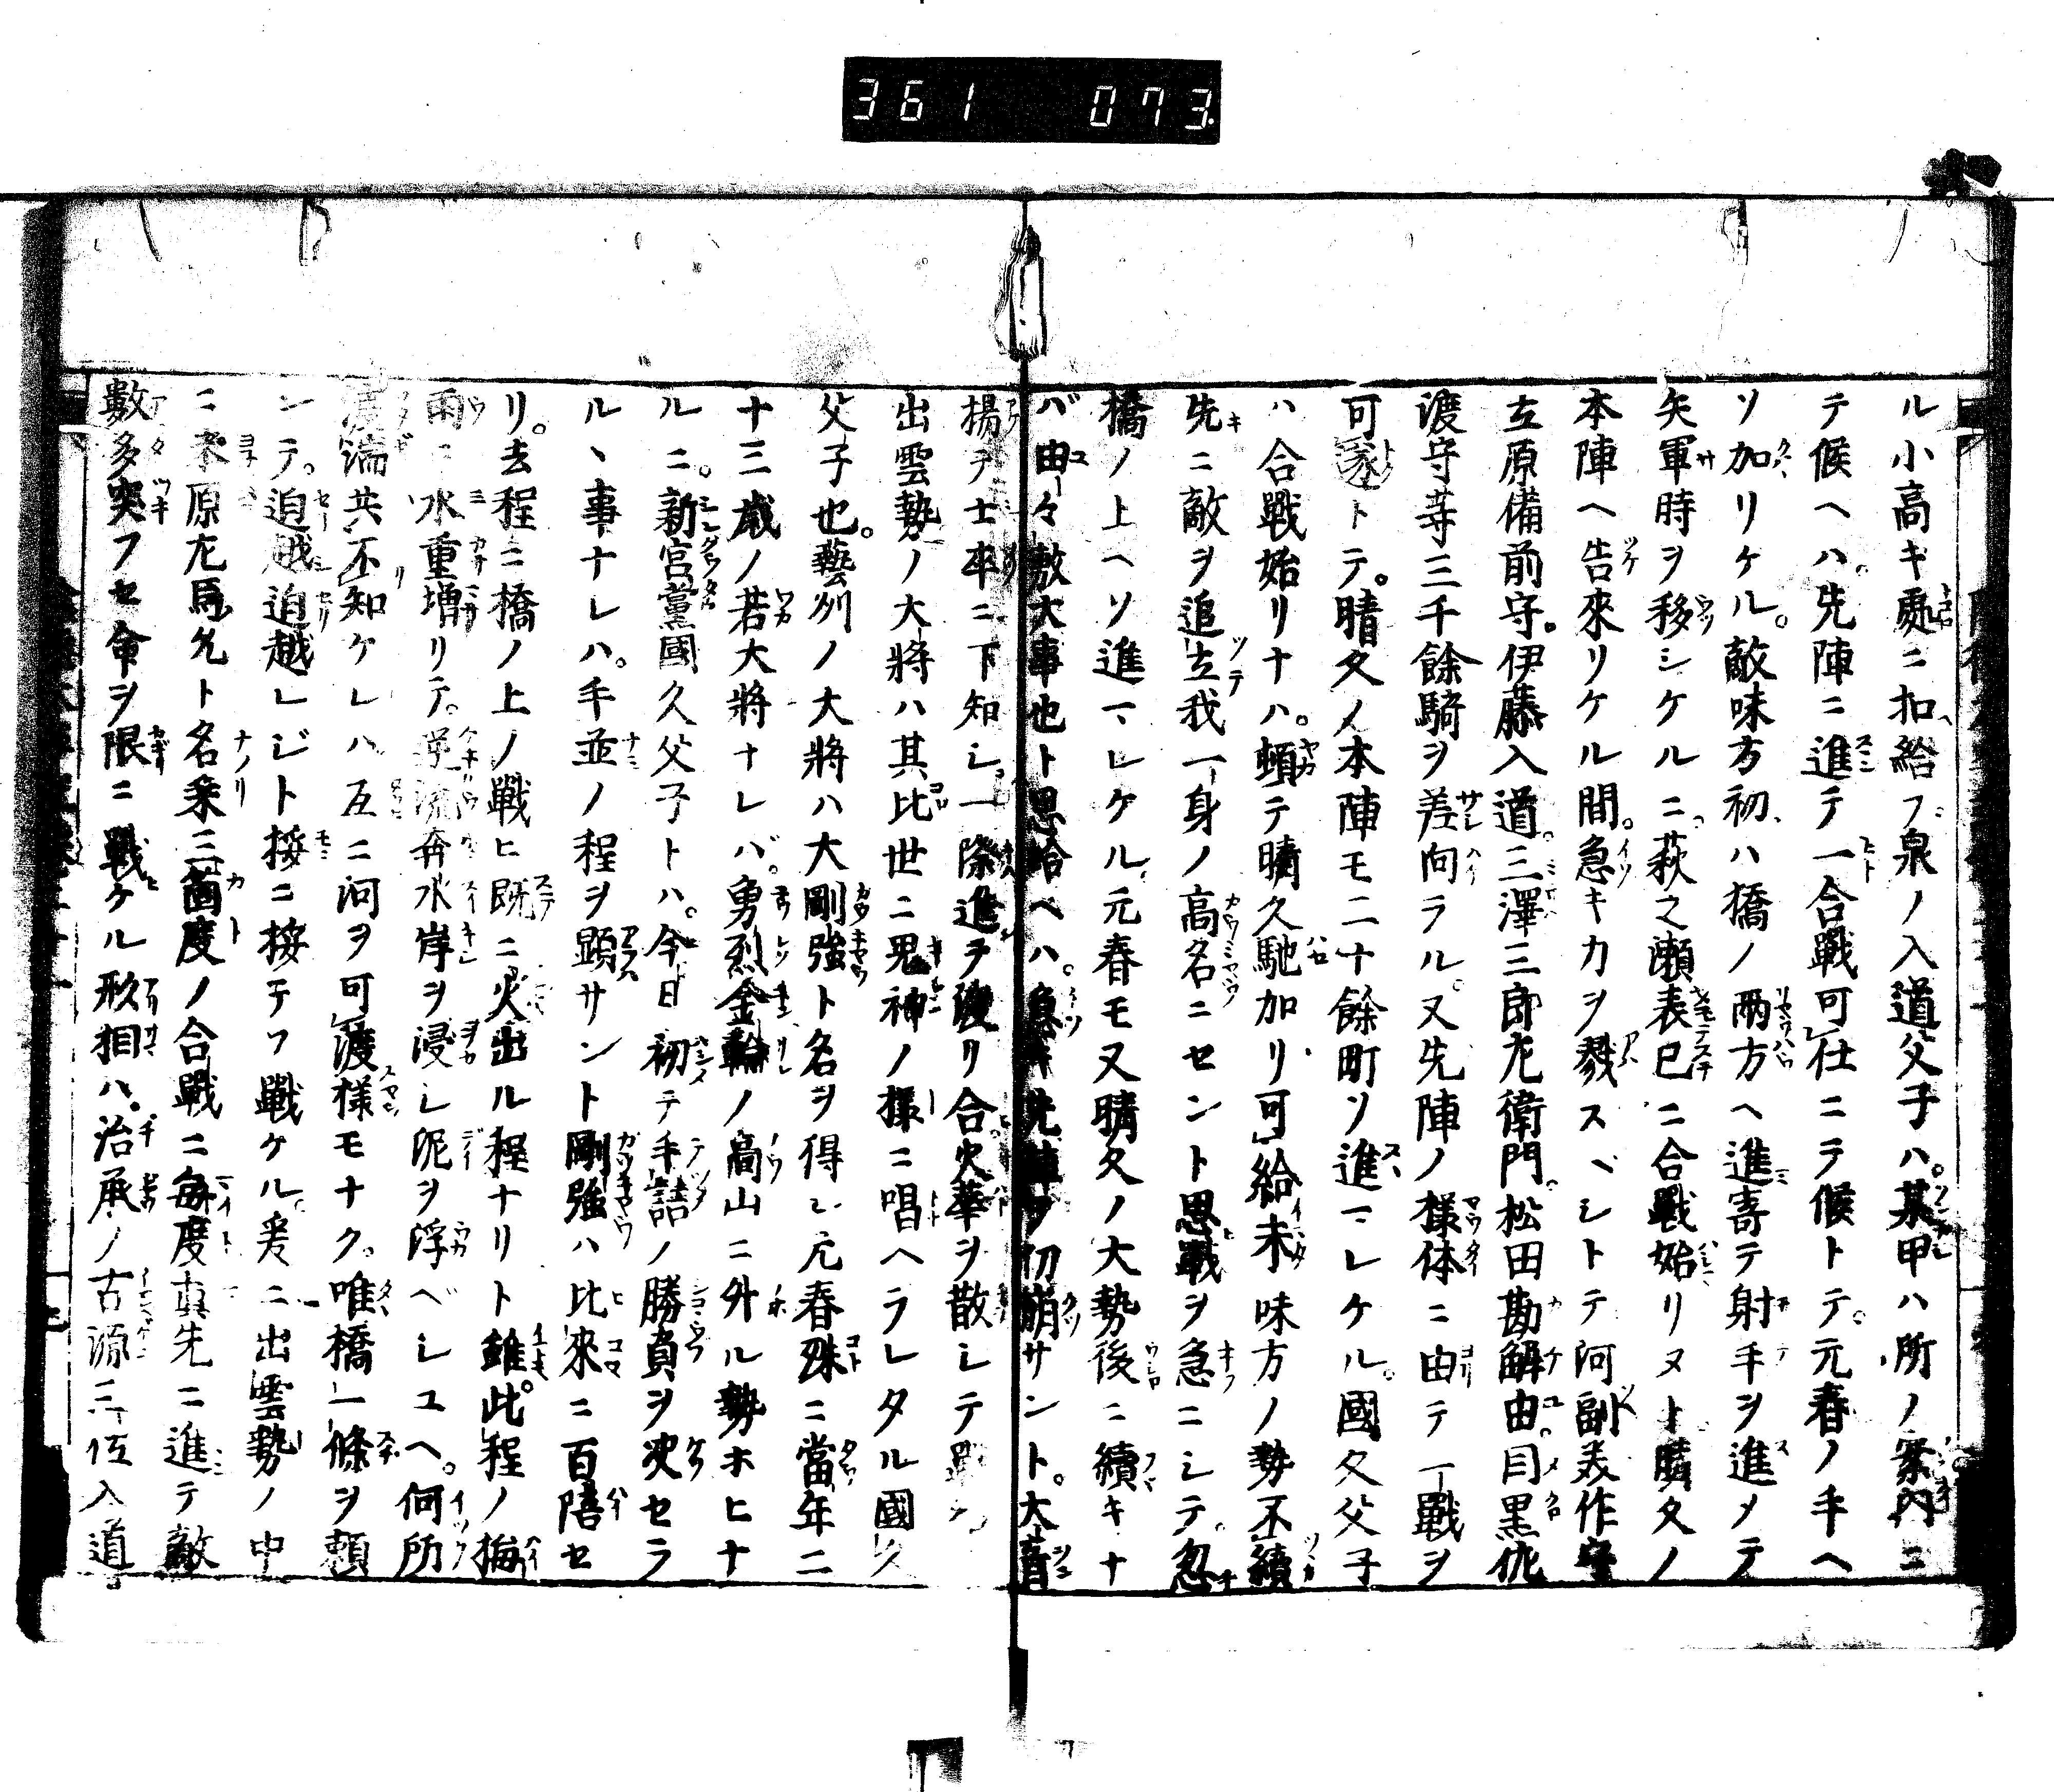 361 073.
ル小高キ處ニ扣給フ泉ノ入道父子ハ。某甲ハ所ノ案内ニ
テ候ヘハ。先陣ニ進テ一合戰可仕ニテ候トテ。元春ノ手ヘ
ソ加リケル。敵味方初ハ橋ノ兩方ヘ進寄テ射手ヲ進メテ
矢軍時ヲ移シケルニ。萩之瀬表已ニ合戰始リヌト晴久ノ
本陣ヘ告來リケル間。急キ力ヲ戮スベシトテ河副美作守
立原備前守。伊藤入道。三澤三郎左衛門。松田勘解由。目黒佐
渡守等三千餘騎ヲ差向ラル。又先陣ノ様体ニ由テ一戰ヲ
可遂トテ。晴久ノ本陣モ二十餘町ソ進マレケル。國久父子
ハ合戰始リナハ。頓テ晴久馳加リ可給未味方ノ勢不續
先ニ敵ヲ追立我一身ノ高名ニセント思戰ヲ急ニシテ。忽
橋ノ上ヘソ進マレケル。元春モ又晴久ノ大勢後ニ續キナ
バ由々敷大事也ト思給ヘハ。急キ先陣ヲ切崩サント。大音
揚テ士卒ニ下知シ。一際進テ渡リ合火華ヲ散シテ戰フ
出雲勢ノ大將ハ其比世ニ鬼神ノ様ニ唱ヘラレタル國久
父子也。藝列ノ大將ハ大剛強ト名ヲ得シ元春殊ニ當年二
十三歳ノ若大將ナレバ。勇烈金輪ノ高山ニ外ル勢ホヒナ
ルニ。新宮黨國久父子トハ。今日初テ手詰ノ勝負ヲ決セラ
ルヽ事ナレハ。手並ノ程ヲ顕サント剛強ハ比來ニ百陪セ
リ。去程ニ橋ノ上ノ戰ヒ既ニ火出ル程ナリト雖。此程ノ梅
雨ニ水重増リテ。逆流奔水岸ヲ浸シ泥ヲ浮ベシユヘ。何所
渡湍共不知ケレハ互ニ河ヲ可渡様モナク。唯橋一條ヲ頼
ンテ。追越追越レジト接ニ接テフ戰ケル。爰ニ出雲勢ノ中
ニ米原左馬允ト名乗三箇度ノ合戰ニ毎度真先ニ進テ敵
數多突フセ命ヲ限ニ戰ケル形相ハ。治承ノ古源三位入道